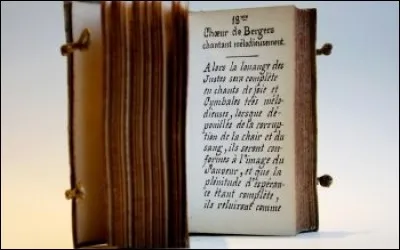 18me
Chœur de Bergers
chantant mélodieusement.
Alors la louange des
Justes sera complète
en chants de joie et
Cymbales très mélo-
dieuses, lorsque dé-
pouillés de la corrup-
tion de la chair et du
sang, ils seront con-
formés à l'image du
Sauveur, et que la
plénitude d'espéran-
ce étant complète,
ils reluiront comme